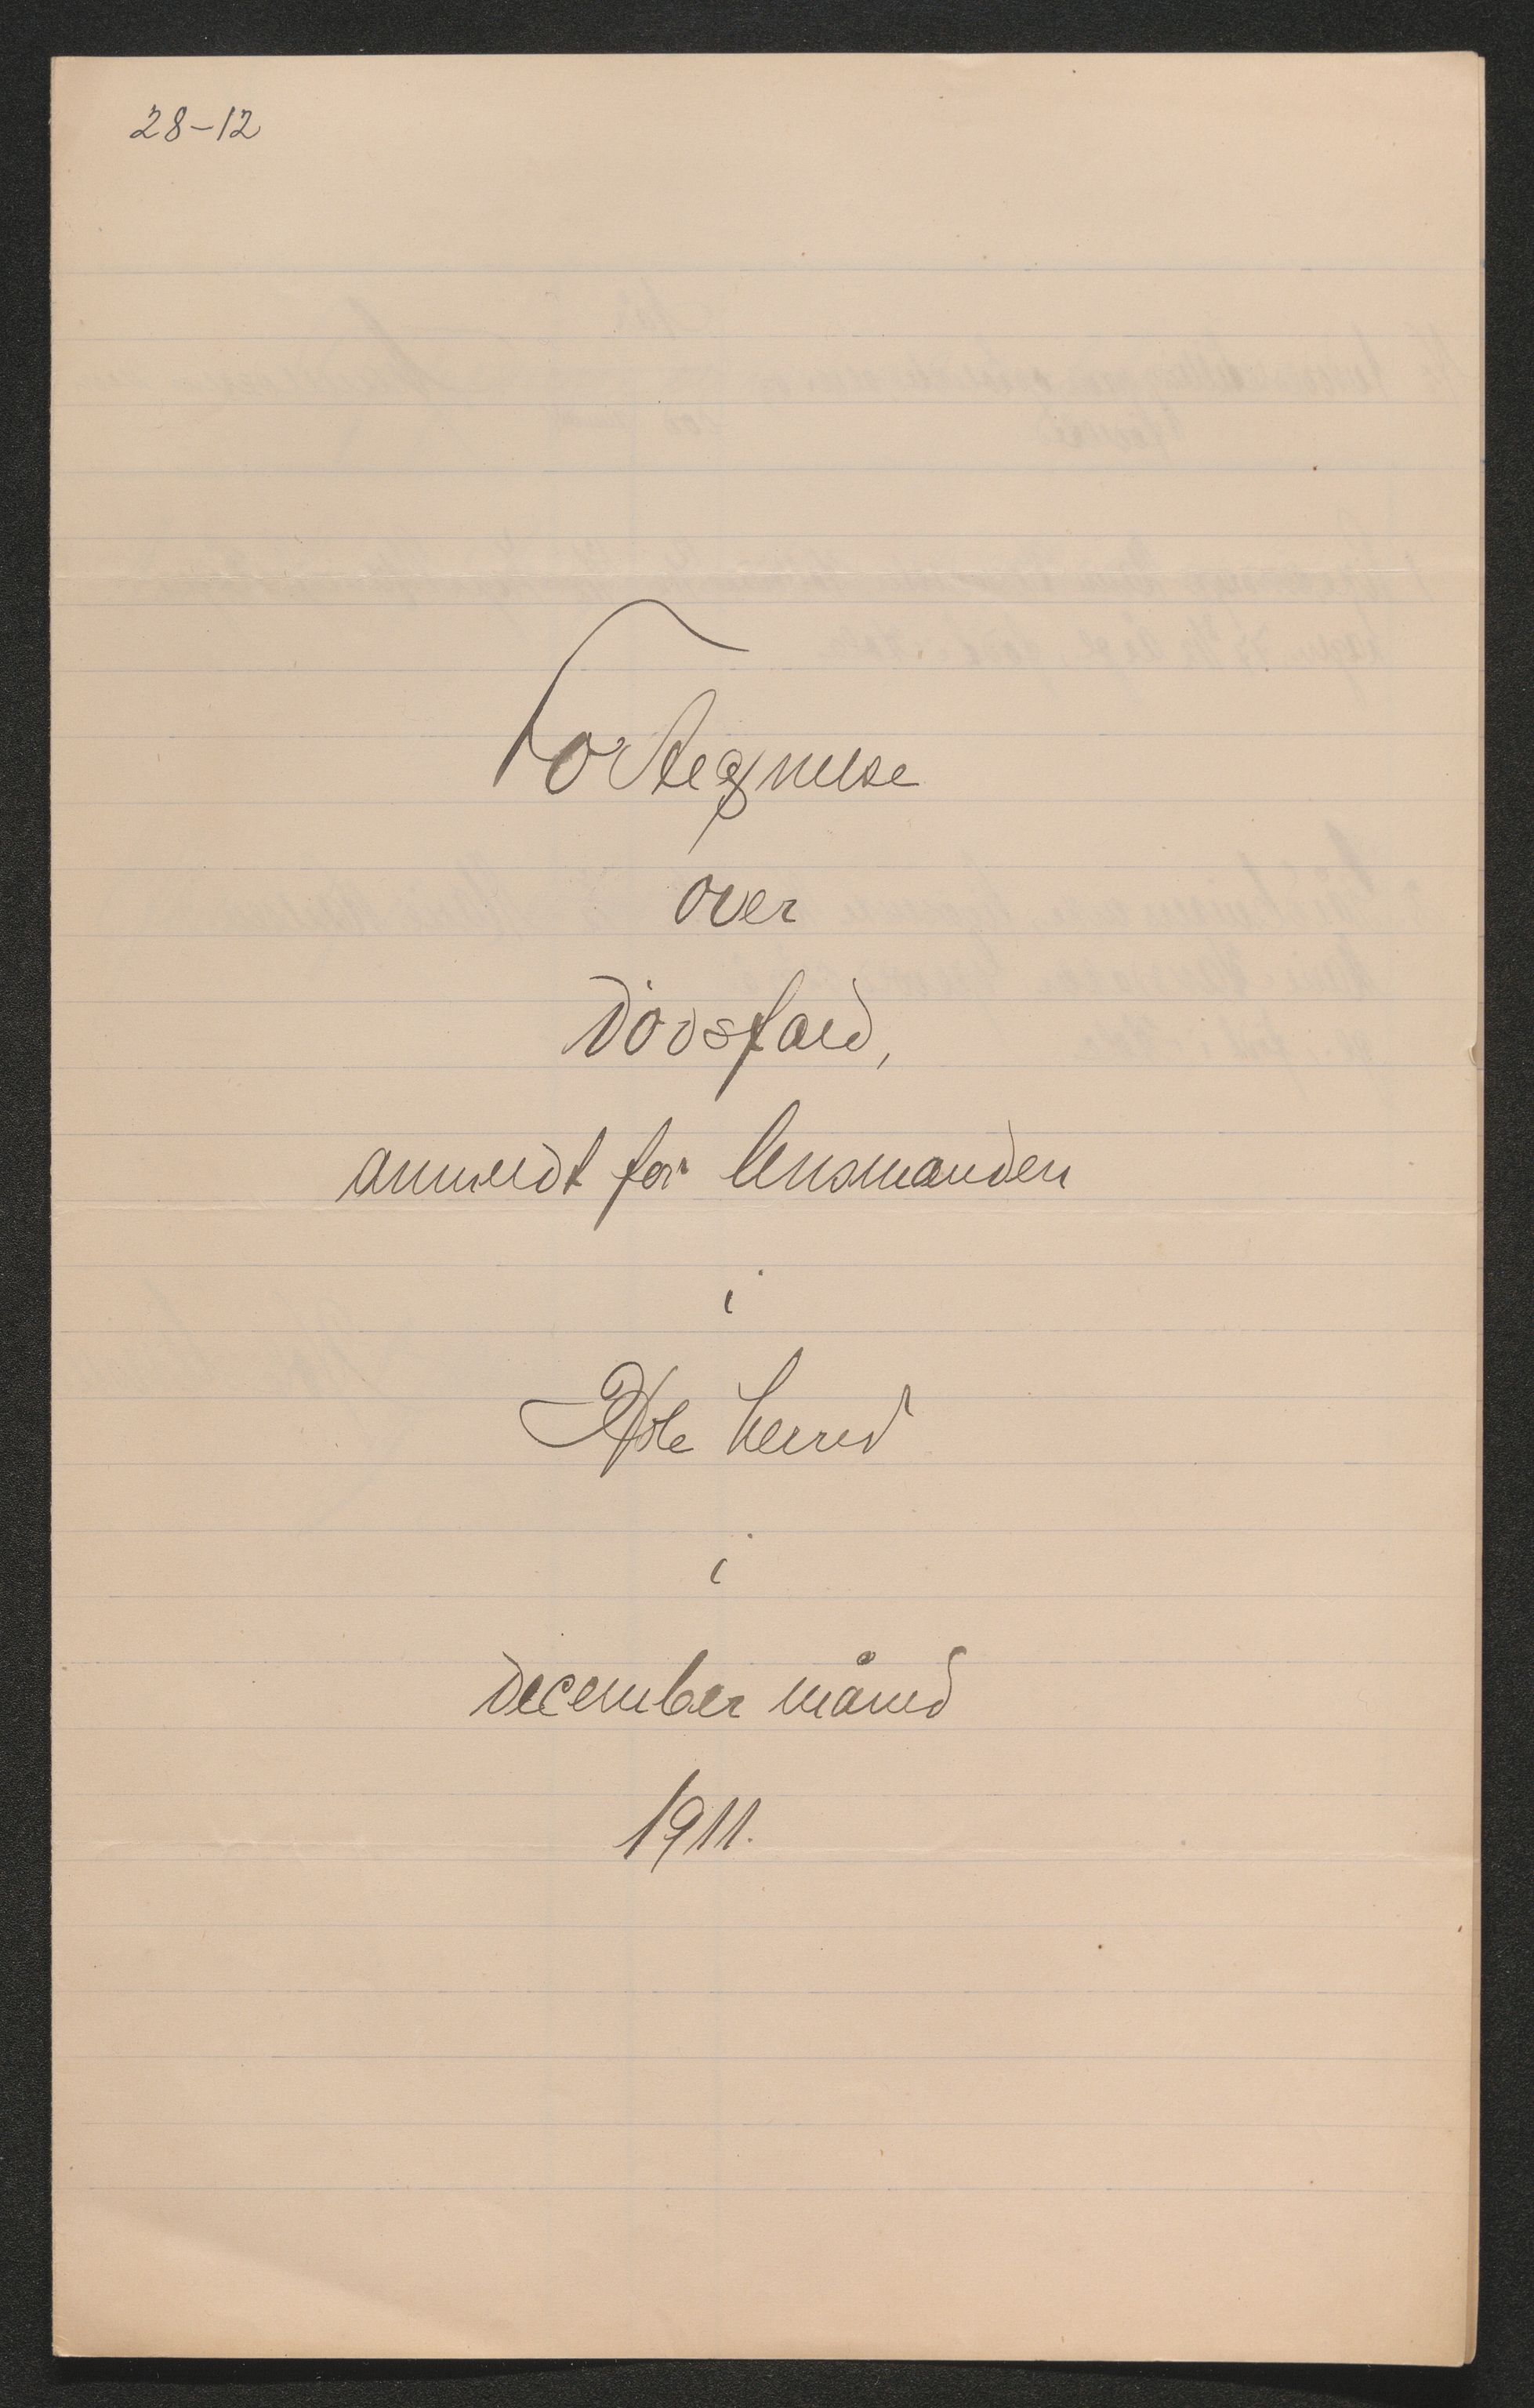 28-12
Fortegnelse
over
dödsfald,
anmeldt for lensmanden
i
herred
i
december måned
1911.